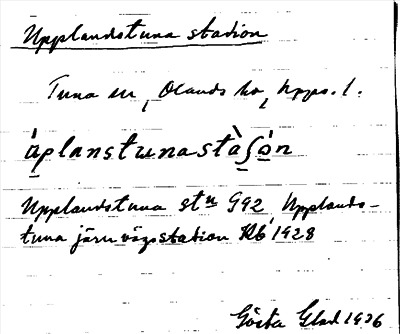 Upplandstuna station
Tuna sn, Olands hd, Upps. l.
áplanstunastàʃón
Upplandstuna stn G92, Upplands-
tuna järnvägsstation Rb 1928
Gösta Glad 1936